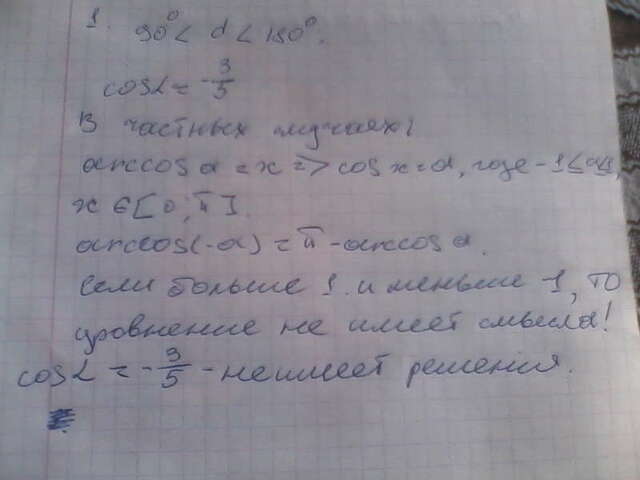 1. 90° < α < 180°.
cosα = -3/5
В частных случаях:
arccos a = x => cos x = a, где -1≤a≤1,
x ∈ [0; π].
arccos(-a) = π - arccos a.
Если больше 1 и меньше -1, то
уровнение не имеет смысла!
cosα = -3/5 - не имеет решения.